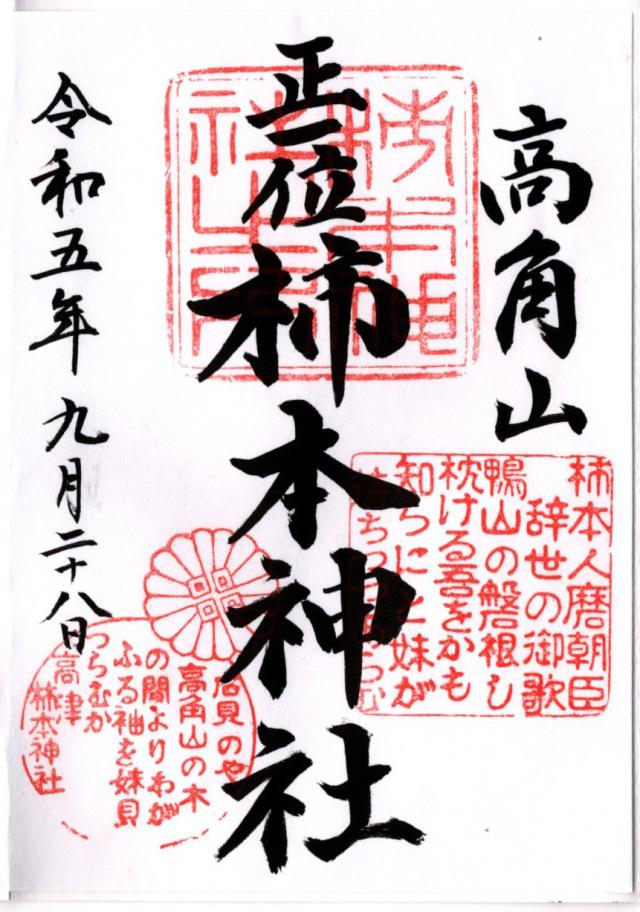 高角山
正一位
柿本神社
令和五年九月二十八日
柿本人麿朝臣
辞世の御歌
鴨山の磐根し
枕ける吾をかも
知らにと妹が
待ちつつあらむ
石見のや
高角山の木
の間よりわが
ふる袖を妹見
つらむか
高津
柿本神社